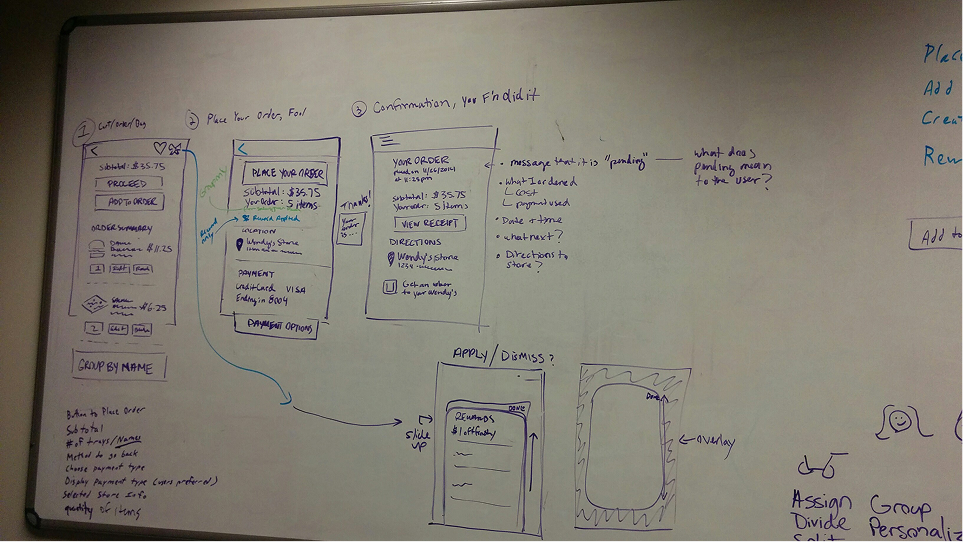 1 Cart/Order/Bag
subtotal: $35.75
PROCEED
ADD TO ORDER
ORDER SUMMARY
$11.25
1
Edit
$6.25
2
Edit
GROUP BY NAME
Button to Place Order
Subtotal
# of trays/Names
Method to go back
Choose payment type
Display payment type (users preferred)
Selected store info
quantity of items
2 Place Your Order, Fool
PLACE YOUR ORDER
Subtotal: $35.75
Your order: 5 items
LOCATION
Wendy's Store
PAYMENT
Credit Card VISA
Ending in 8004
PAYMENT OPTIONS
Thanks!
Your
order
is ...
3 Confirmation, you F'n did it
YOUR ORDER
placed on 11/26/2014
at 11:25pm
subtotal: $35.75
Your order: 5 items
VIEW RECEIPT
DIRECTIONS
Wendy's Store
1234
U Get an uber
to your Wendy's
• message that it is "pending"
• What I ordered
Cost
payment used
• Date & time
• what next?
• Directions to
store?
what does
pending mean
to the user?
APPLY/DISMISS?
Slide
up
DONE
REWARDS
$1 off frosty
Done
overlay
Add
Add to
Assign
Divide
Split
Group